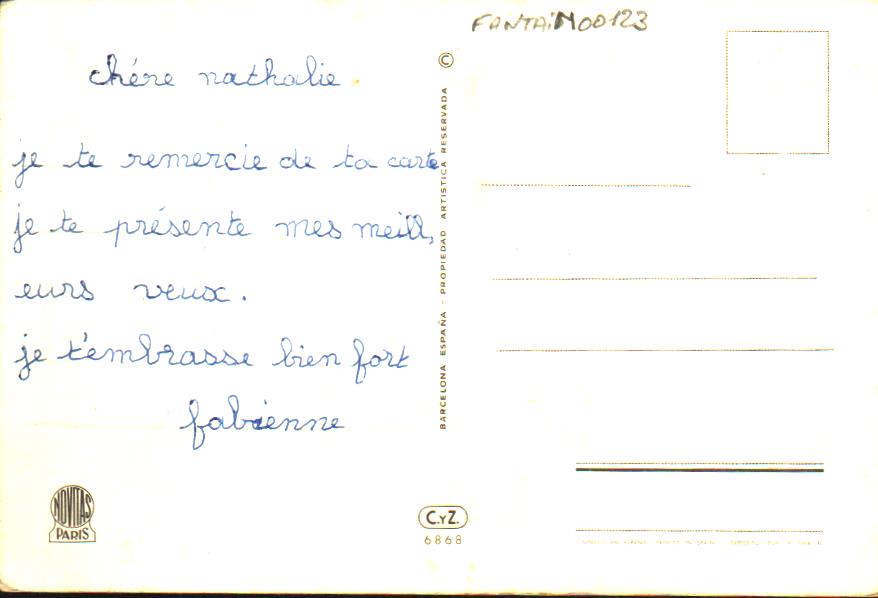 FANTAiM00123
chére nathalie
je te remercie de ta carte
je te présente mes meill,
eurs veux.
je t'embrasse bien fort
fabienne
© BARCELONA ESPAÑA - PROPIEDAD ARTISTICA RESERVADA
NOVITAS
PARIS
C.YZ.
6868